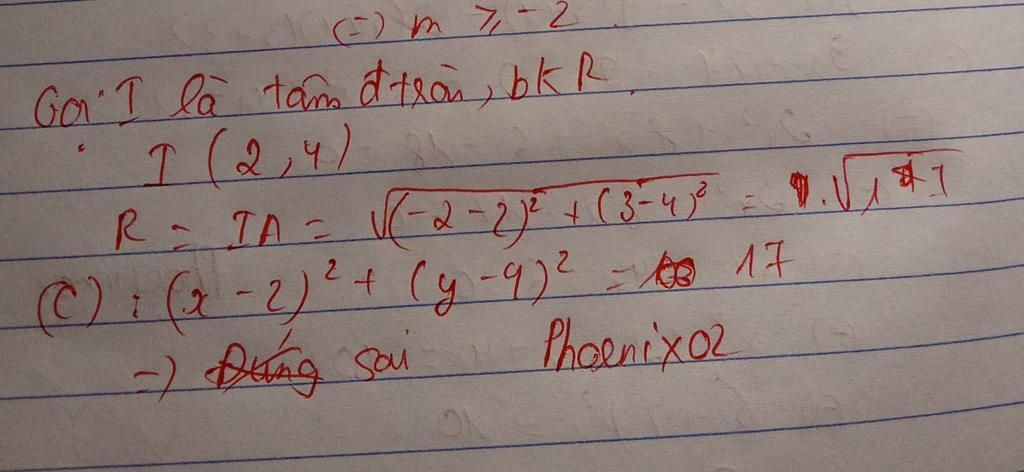 (=) m ⩾ -2
Gọi I là tâm đ tròn, bk R.
I (2,4)
R = IA = √((-2-2)² + (3-4)²) = √17
(C) : (x-2)² + (y-4)² = 17
=) Đúng sai Phoenix02